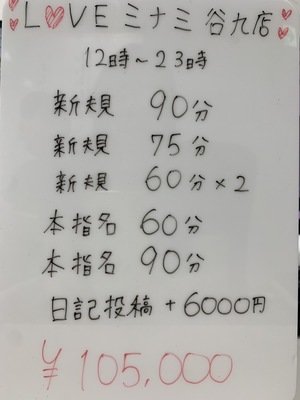 L♡VE ミナミ 谷九店
12時～23時
新規 90分
新規 75分
新規 60分×2
本指名 60分
本指名 90分
日記投稿 +6000円
¥105,000